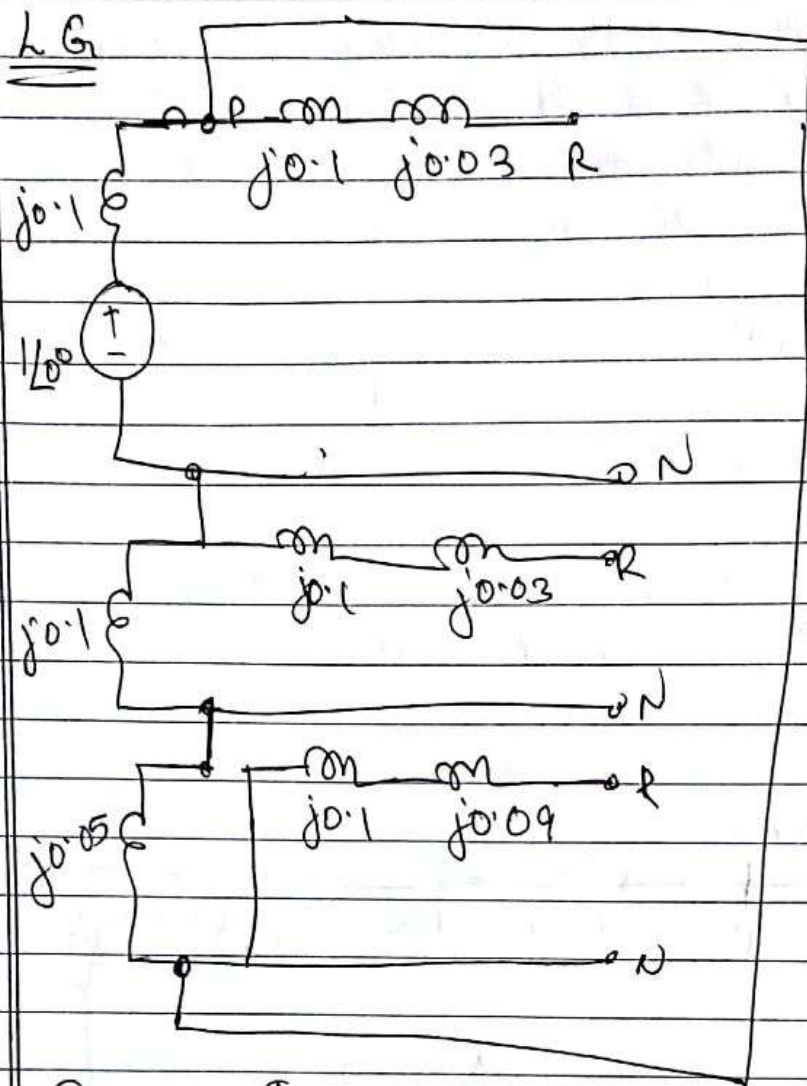 LG
P
j0.1 j0.03 R
j0.1
+
-
1∠0°
N
j0.1 j0.03 R
j0.1
N
j0.1 j0.09 R
j0.05
N